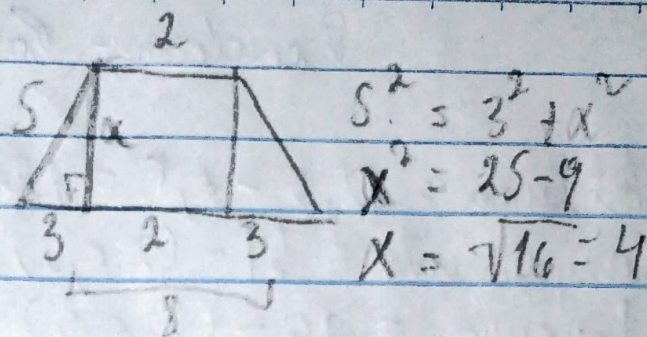 2
5 x
3 2 3
8
5² = 3² + x²
x² = 25 - 9
x = √16 = 4